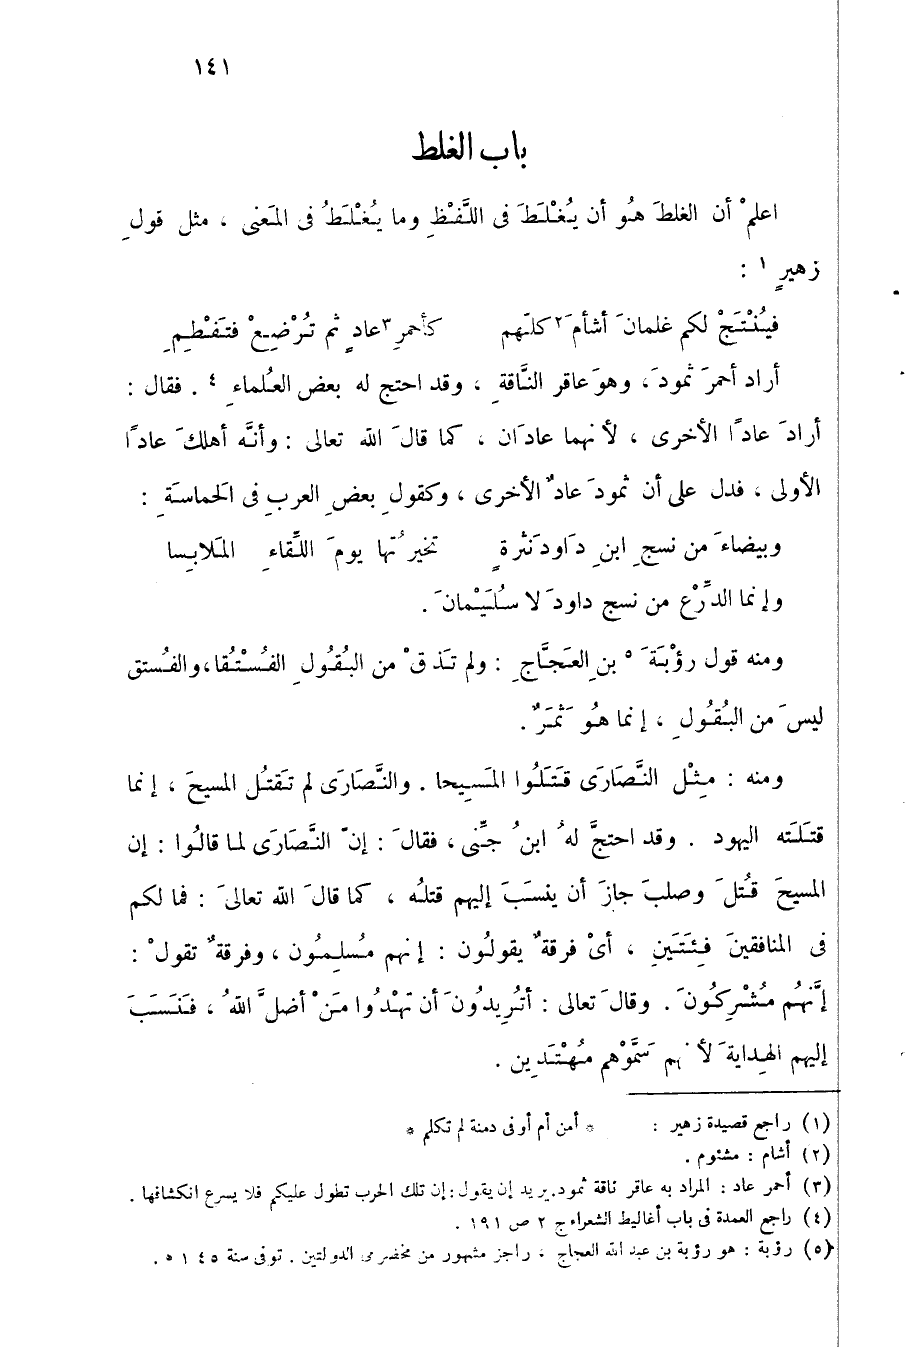 ١٤١
باب الغلط
اعلمْ أن الغلطَ هُو أن يُغْلَطَ فى اللَّفْظِ وما يُغْلَطُ فى المَعنى ، مثل قولِ
زهيرٍ ١ :
فيُنْتَجْ لكم غلمانَ أشأمَ ٢ كلهم كأحمرِ ٣ عادٍ ثم تُرْضِعْ فتَفْطِمِ
أراد أحمرَ ثمودَ ، وهوَ عاقر النَّاقةِ ، وقد احتج له بعض العُلماءِ ٤ . فقال :
أرادَ عادًا الأخرى ، لأنهما عادَان ، كما قالَ الله تعالى : وأنَّه أهلكَ عادًا
الأولى ، فدل على أن ثمودَ عادٌ الأخرى ، وكقولِ بعضِ العربِ فى الحَماسَةِ :
وبيضاءَ من نسجِ ابنِ دَاودَ نثرةٍ تخيرتُها يومَ اللِّقاءِ المَلابِسا
وإنما الدِّرْع من نسج داودَ لا سُلَيْمانَ .
ومنه قول رؤْبَةَ ٥ بنِ العَجَّاجِ : ولم تَذقْ من البُقُولِ الفُسْتُقا ، والفُستق
ليسَ من البُقُولِ ، إنما هُو ثَمَرٌ .
ومنه : مِثْل النَّصَارَى قَتَلُوا المَسِيحا . والنَّصَارَى لم تَقتُل المسيحَ ، إنما
قتَلَته اليهود . وقد احتجَّ لهُ ابنُ جِنِّى ، فقالَ : إنّ النَّصَارَى لما قالُوا : إن
المسيحَ قُتلَ وصلبَ جازَ أن ينسَبَ إليهم قتلُه ، كما قالَ الله تعالىَ : فما لكم
فى المنافقينَ فِئتَينِ ، أىْ فرقةٌ يقولُون : إنهم مُسلِمُون ، وفرقةٌ تقولْ :
إنَّهُم مُشْرِكُونَ . وقالَ تعالى : أتُريدُونَ أن تهْدُوا مَنْ أضلَّ اللهُ ، فنَسَبَ
إليهم الهِدايةَ لأنهم سَمَّوْهم مُهْتَدِين .
(١) راجع قصيدة زهير : * أمن أم أوفى دمنة لم تكلم *
(٢) أشام : مشئوم .
(٣) أحمر عاد : المراد به عاقر ناقة ثمود . يريد إن يقول : إن تلك الحرب تطول عليكم فلا يسرع انكشافها .
(٤) راجع العمدة فى باب أغاليط الشعراء ج ٢ ص ١٩١ .
(٥) رؤبة : هو رؤبة بن عبد الله العجاج ، راجز مشهور من مخضرمى الدولتين . توفى سنة ١٤٥ ه .